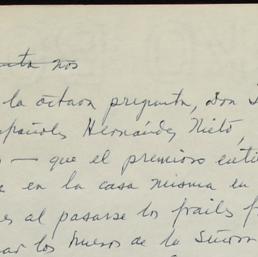 nos
la octava pregunta, Don
españoles Hernández Nieto,
— que el premioso
en la casa misma en
al pasarse los frailes
los huesos de la Señora